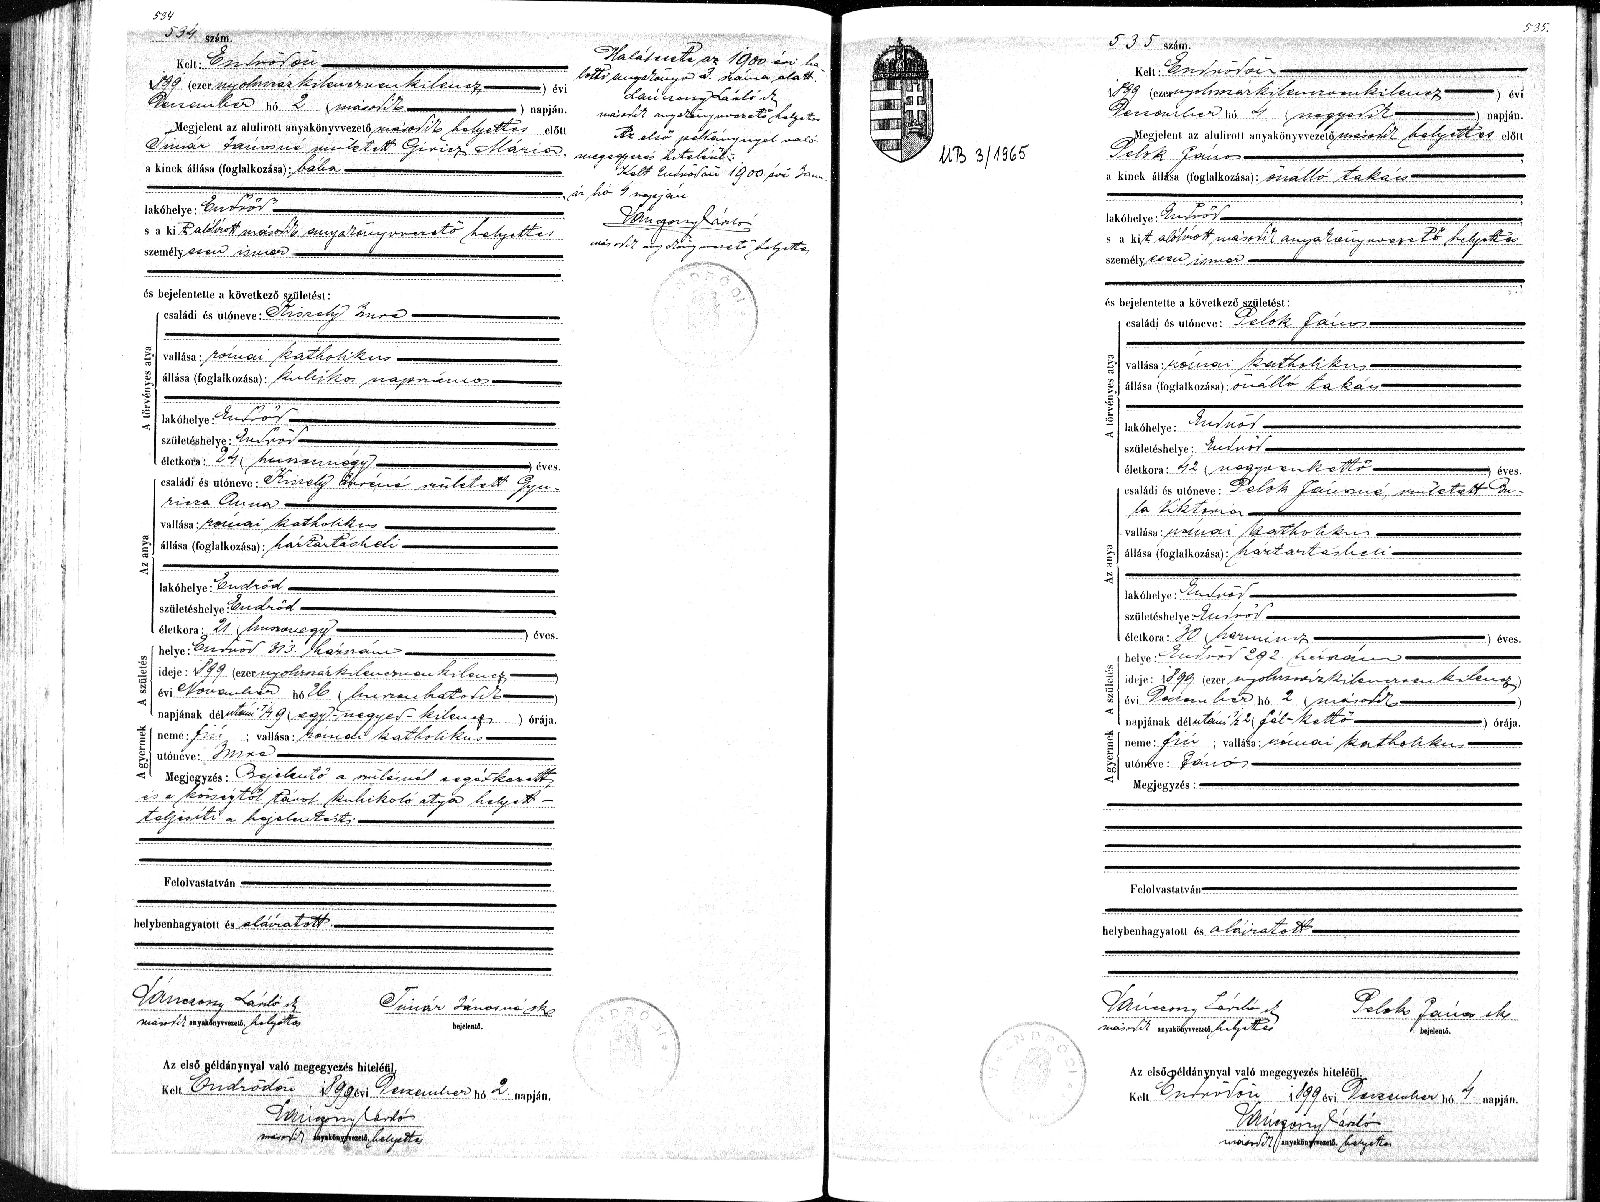 534
534 szám.
Kelt: Endrődön
1899 (ezer nyolcszázkilencvenkilencz) évi
Deczember hó 2 (második) napján.
Megjelent az alulirott anyakönyvvezető második helyettes előtt
Timár Jánosné született Giricz Mária
a kinek állása (foglalkozása): bába
lakóhelye: Endrőd
s a kit alólirott második anyakönyvvezető helyettes
személyesen ismer
és bejelentette a következő születést:
A törvényes atya
családi és utóneve: Kiszely Imre
vallása: római katholikus
állása (foglalkozása): kubikos napszámos
lakóhelye: Endrőd
születéshelye: Endrőd
életkora: 24 (huszonnégy) éves.
Az anya
családi és utóneve: Kiszely Imréné született Gyu-
ricza Anna
vallása: római katholikus
állása (foglalkozása): háztartásbeli
lakóhelye: Endrőd
születéshelye: Endrőd
életkora: 21 (huszonegy) éves.
A születés
helye: Endrőd 313. házszám
ideje: 1899 (ezer nyolcszázkilencvenkilencz)
évi November hó 26 (huszonhatodik)
napjának délutáni 1/4 9 (egy-negyed-kilencz) órája.
A gyermek
neme: fiú ; vallása: római katholikus
utóneve: Imre
Megjegyzés: Bejelentő a szülésnél segédkezett
és a községtől távol kubikoló atya helyett
teljesíti a bejelentést.
Felolvastatván
helybenhagyatott és aláiratott.
Vánczony László sk
második anyakönyvvezető helyettes
Timár Jánosné sk
bejelentő.
Az első példánynyal való megegyezés hiteléül.
Kelt Endrődön 1899 évi Deczember hó 2 napján.
Vánczony László
második anyakönyvvezető helyettes
Halálesete az 1900 évi ha-
lotti anyakönyv 3. száma alatt.
Vánczony László sk
második anyakönyvvezető helyettes
Az első példánynyal való
megegyezés hiteléül.
Kelt Endrődön 1900 évi Janu-
ár hó 4 napján
Vánczony László
második anyakönyvvezető helyettes
535.
535 szám.
MB 3/1965
Kelt: Endrődön
1899 (ezer nyolcszázkilencvenkilencz) évi
Deczember hó 4 (negyedik) napján.
Megjelent az alulirott anyakönyvvezető második helyettes előtt
Pelok János
a kinek állása (foglalkozása): önálló takács
lakóhelye: Endrőd
s a kit alólirott második anyakönyvvezető helyettes
személyesen ismer
és bejelentette a következő születést:
A törvényes atya
családi és utóneve: Pelok János
vallása: római katholikus
állása (foglalkozása): önálló takács
lakóhelye: Endrőd
születéshelye: Endrőd
életkora: 42 (negyvenkettő) éves.
Az anya
családi és utóneve: Pelok Jánosné született
Viktória
vallása: római katholikus
állása (foglalkozása): háztartásbeli
lakóhelye: Endrőd
születéshelye: Endrőd
életkora: 30 (harmincz) éves.
A születés
helye: Endrőd 292 házszám
ideje: 1899 (ezer nyolcszázkilencvenkilencz)
évi Deczember hó 2 (második)
napjának délutáni 1/2 2 (fél-kettő) órája.
A gyermek
neme: fiú ; vallása: római katholikus
utóneve: János
Megjegyzés:
Felolvastatván
helybenhagyatott és aláiratott
Vánczony László sk
második anyakönyvvezető helyettes
Pelok János sk
bejelentő.
Az első példánynyal való megegyezés hiteléül.
Kelt Endrődön 1899 évi Deczember hó 4 napján.
Vánczony László
második anyakönyvvezető helyettes